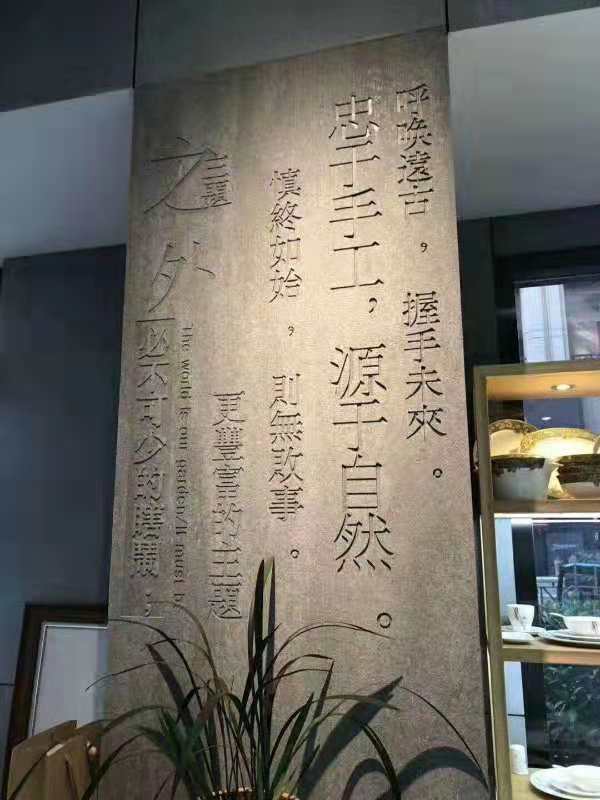 呼喚遠古，握手未來。
忠于手工，源于自然。
慎終如始，則無敗事。
更豐富的主題
主題
之外
the world is our garden/It must b
必不可少的